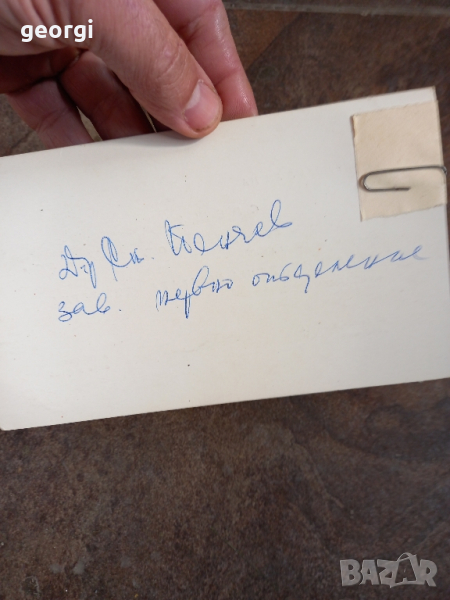 georgi
Др Сн. Пенчев
зав. първо отделение
BAZAR